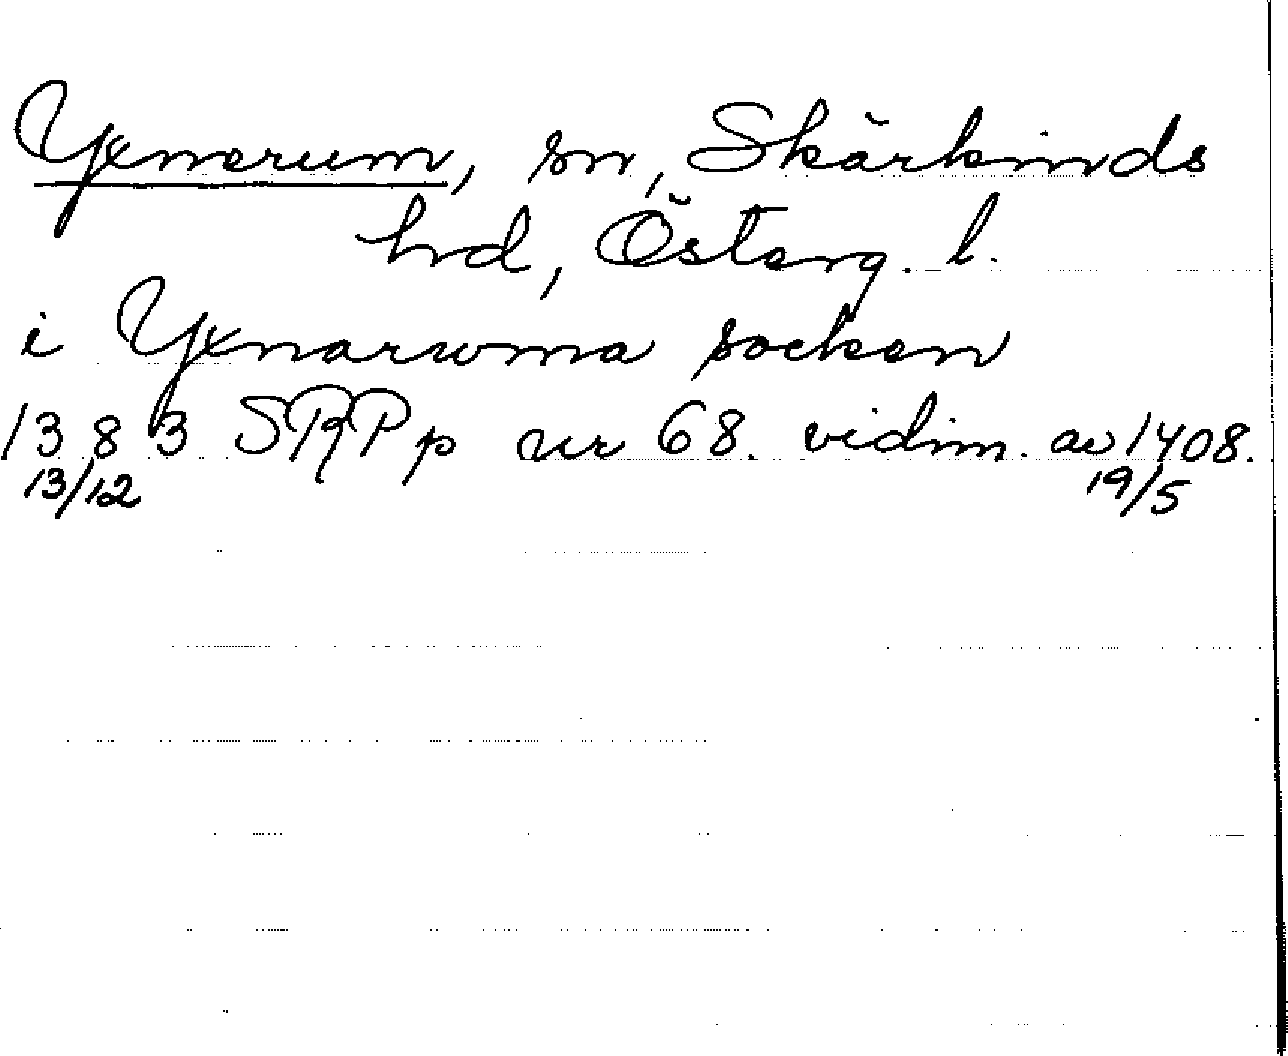 Yxnerum, sn, Skärkinds
hrd, Österg. l.
i Yxnarwma socken
1383 SRPp nr 68. vidim. av 1408.
13/12 19/5